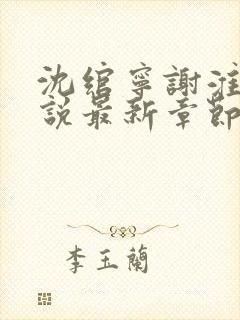 沈綰寧謝淮
說最新章節
李玉蘭